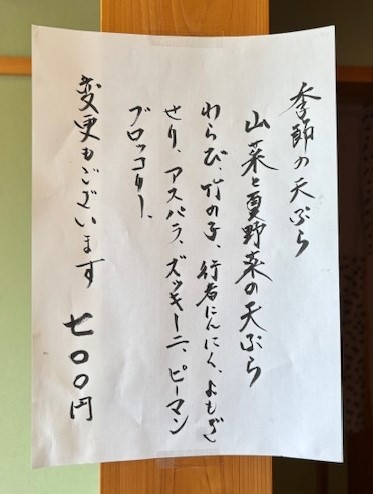 季節の天ぷら
山菜と夏野菜の天ぷら
わらび、竹の子、行者にんにく、よもぎ
せり、アスパラ、ズッキーニ、ピーマン
ブロッコリー、
変更もございます 七〇〇円